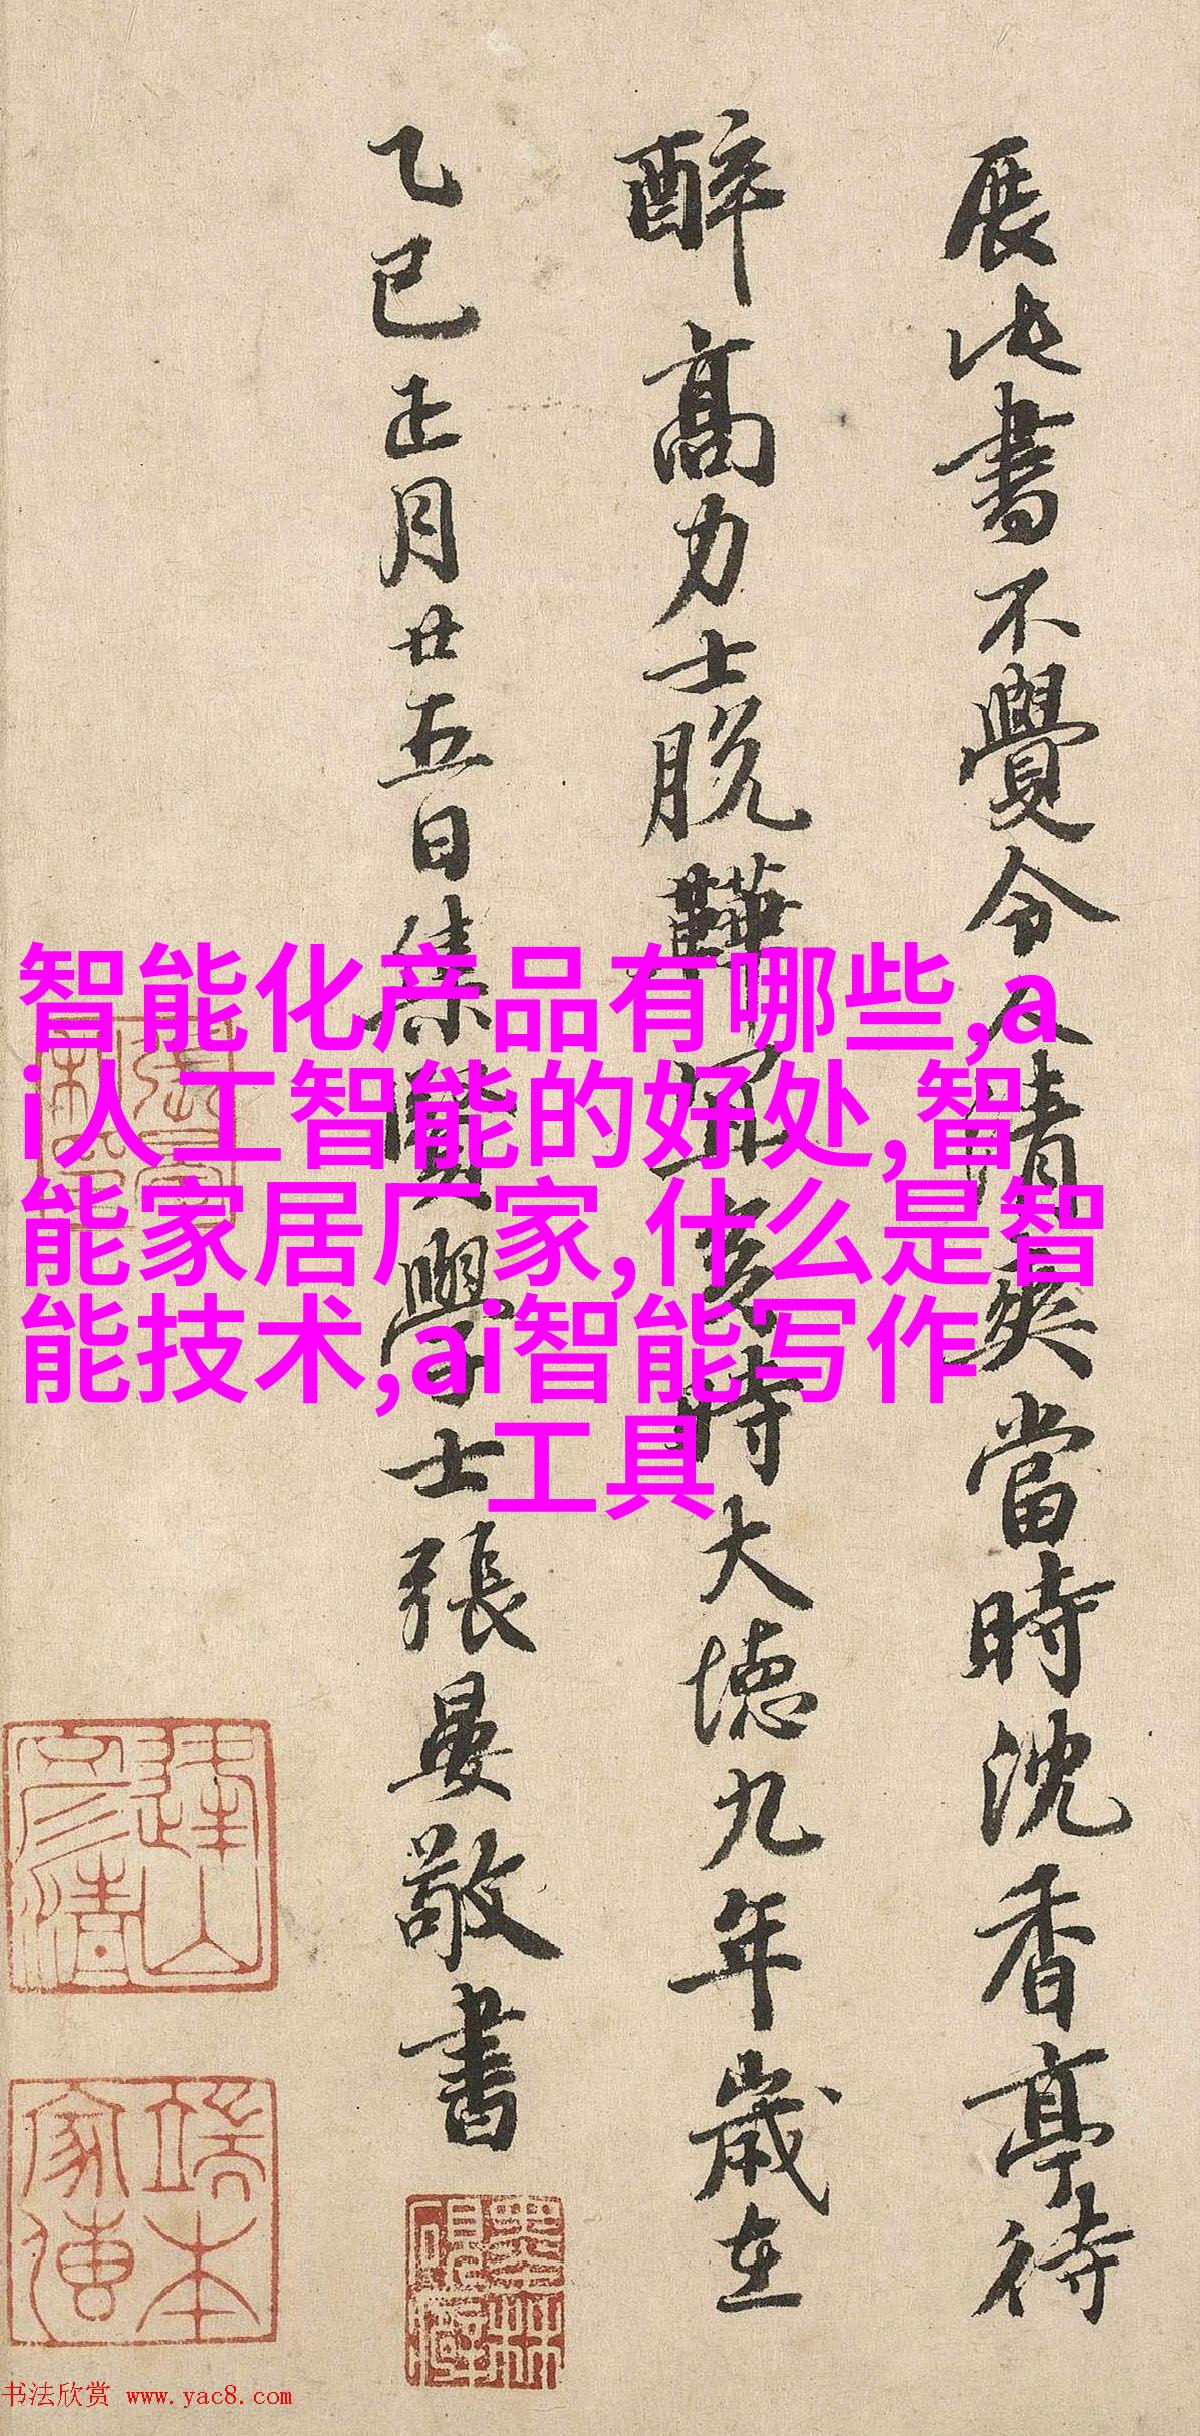 展此書不覺令人清爽當時沈香亭待
醉高力士脫鞾時大德九年歲在
乙巳正月廿五日集賢學士張晏敬書
智能化产品有哪些,a
i人工智能的好处,智
能家居厂家,什么是智
能技术,ai智能写作
工具
端本家傳
书法欣赏 www.yac8.com